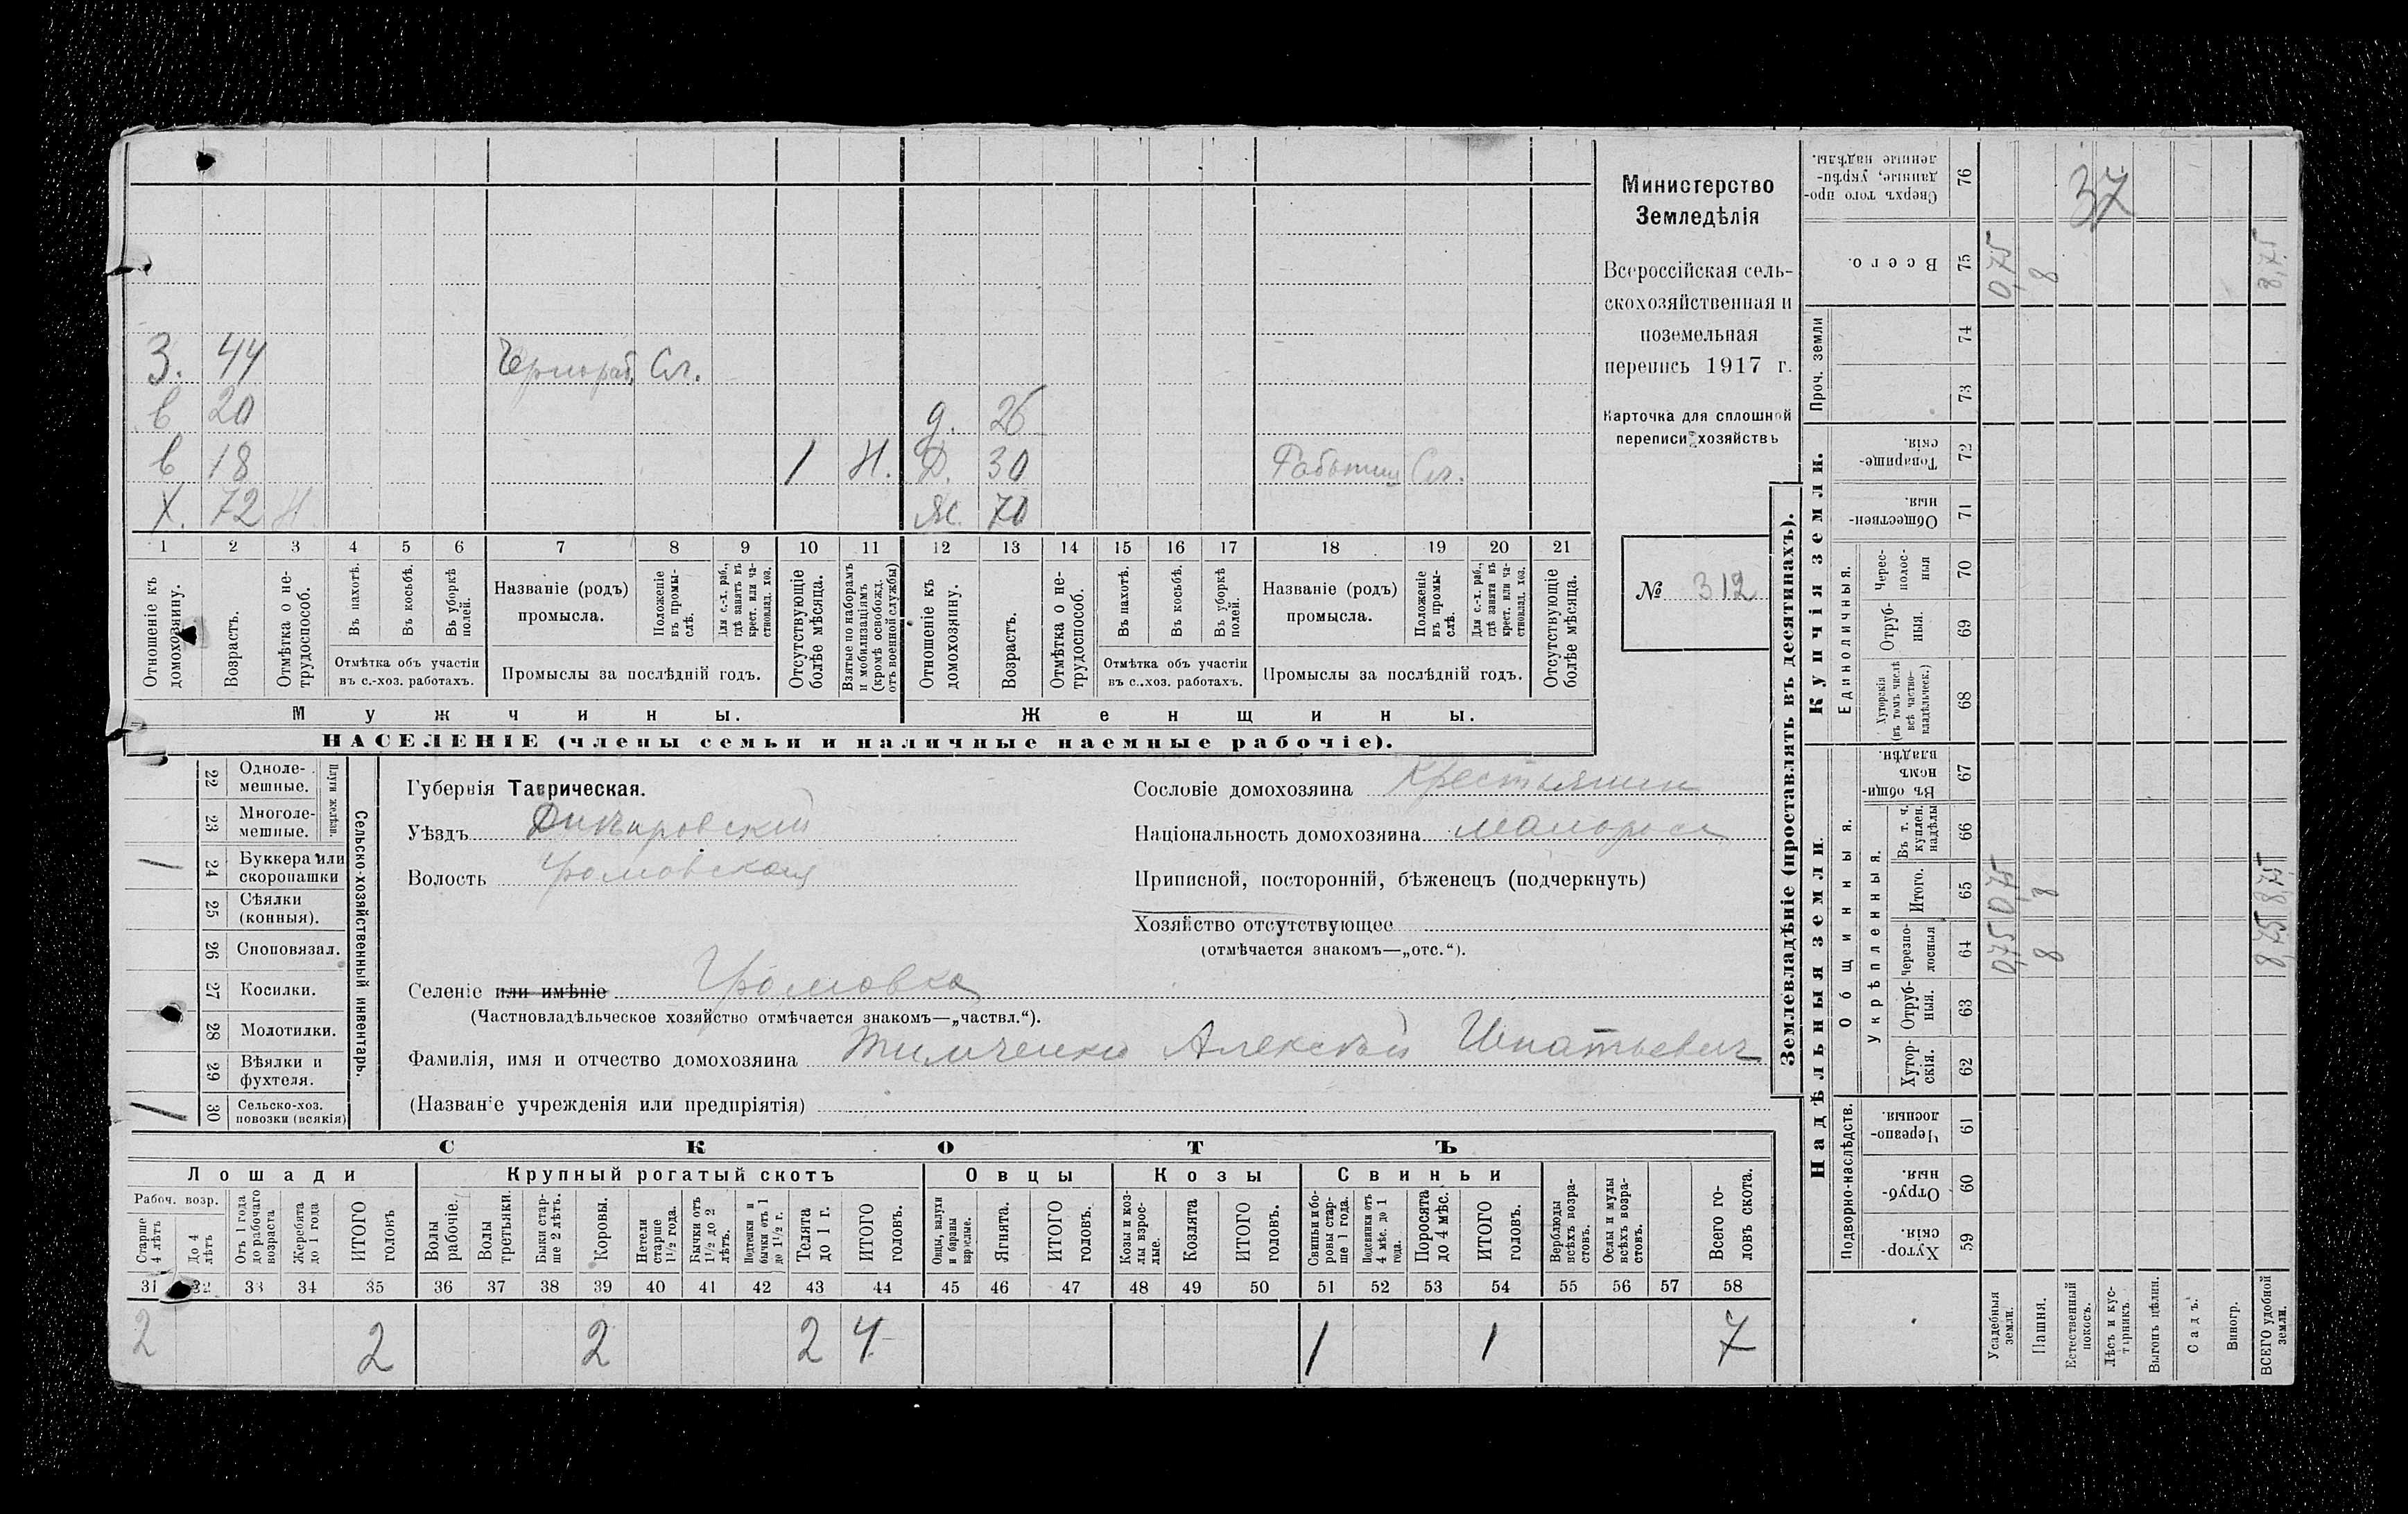 Министерство
Земледѣлія
Всероссійская сель-
скохозяйственная и
поземельная
перепись 1917 г.
Карточка для сплошной
переписи хозяйствъ
№ 312
З. 44 Чернораб. Сл.
в 20 д. 26
в 18 1 Н. Д. 30 Работниц Сл.
Х. 72 Н. Ж. 70
1 2 3 4 5 6 7 8 9 10 11 12 13 14 15 16 17 18 19 20 21
Отношеніе къ домохозяину.
Возрастъ.
Отмѣтка о не-трудоспособ.
Въ пахотѣ.
Въ косьбѣ.
Въ уборкѣ полей.
Отмѣтка объ участіи
въ с.-хоз. работахъ.
Названіе (родъ)
промысла.
Положеніе въ промы-слѣ.
Для с.-х. раб., гдѣ занятъ въ крест. или ча-стновлад. хоз.
Промыслы за послѣдній годъ.
Отсутствующіе болѣе мѣсяца.
Взятые по наборамъ и мобилизаціямъ (кромѣ освобожд. отъ военной службы)
Отношеніе къ домохозяину.
Возрастъ.
Отмѣтка о не-трудоспособ.
Въ пахотѣ.
Въ косьбѣ.
Въ уборкѣ полей.
Отмѣтка объ участіи
въ с..хоз. работахъ.
Названіе (родъ)
промысла.
Положеніе въ промы-слѣ.
Для с.-х. раб., гдѣ занята въ крест. или ча-стновлад. хоз.
Промыслы за послѣдній годъ.
Отсутствующіе болѣе мѣсяца.
Мужчины.
Женщины.
НАСЕЛЕНІЕ (члены семьи и наличные наемные рабочіе).
Сельско-хозяйственный инвентарь.
Плуги желѣзн.
22 Одноле-мешные.
23 Многоле-мешные.
1 24 Буккера или скоропашки
25 Сѣялки (конныя).
26 Сноповязал.
27 Косилки.
28 Молотилки.
29 Вѣялки и фухтеля.
1 30 Сельско-хоз. повозки (всякія)
Губернія Таврическая.
Уѣздъ Днѣпровскій
Волость Громовская
Сословіе домохозяина Крестьянин
Національность домохозяина малоросс
Приписной, посторонній, бѣженецъ (подчеркнуть)
Хозяйство отсутствующее
(отмѣчается знакомъ—„отс.“).
Селеніе или имѣніе Громовка
(Частновладѣльческое хозяйство отмѣчается знакомъ—„частвл.“).
Фамилія, имя и отчество домохозяина Тимченко Алексѣй Игнатьевич
(Названіе учрежденія или предпріятія)
СКОТЪ
Лошади Крупный рогатый скотъ Овцы Козы Свиньи
Рабоч. возр.
Старше 4 лѣтъ
До 4 лѣтъ
Отъ 1 года до рабочаго возраста
Жеребята до 1 года
ИТОГО головъ
Волы рабочіе.
Волы третьяки.
Быки стар-ше 2 лѣтъ.
Коровы.
Нетели старше 1½ года.
Бычки отъ 1½ до 2 лѣтъ.
Подтелки и бычки отъ 1 до 1½ г.
Телята до 1 г.
ИТОГО головъ.
Овцы, валухи и бараны взрослые.
Ягнята.
ИТОГО головъ.
Козы и коз-лы взрос-лые.
Козлята
ИТОГО головъ.
Свиньи и бо-ровы стар-ше 1 года.
Подсвинки отъ 4 мѣс. до 1 года.
Поросята до 4 мѣс.
ИТОГО головъ.
Верблюды всѣхъ возра-стовъ.
Ослы и мулы всѣхъ возра-стовъ.
Всего го-ловъ скота.
31 32 33 34 35 36 37 38 39 40 41 42 43 44 45 46 47 48 49 50 51 52 53 54 55 56 57 58
2 2 2 2 4 1 1 7
Землевладѣніе (проставлять въ десятинахъ).
Купчія земли.
Надѣльныя земли.
76 Сверхъ того про-данные, укрѣп-ленные надѣлы.
37
75 Всего. 0,75 8 8,75
Проч. земли
74
73
72 Товарище-скія.
71 Обществен-ныя.
Единоличныя.
70 Черес-полос-ныя
69 Отруб-ныя.
68 Хуторскія (въ томъ числѣ всѣ частно-владѣльческ.)
Общинныя.
67 Въ общи-номъ владѣн.
Укрѣпленныя.
66 Въ т. ч. куплен. надѣлы
65 Итого. 0,75 8 8,75
64 черезпо-лосныя 0,75 8 8,75
63 Отруб-ныя.
62 Хутор-скія.
Подворно-наслѣдств.
61 Черезпо-лосныя.
60 Отруб-ныя.
59 Хутор-скія.
Усадебныя земли.
Пашня.
Естественный покосъ.
Лѣсъ и кус-тарникъ.
Выгонъ цѣлин.
Садъ.
Виногр.
ВСЕГО удобной земли.